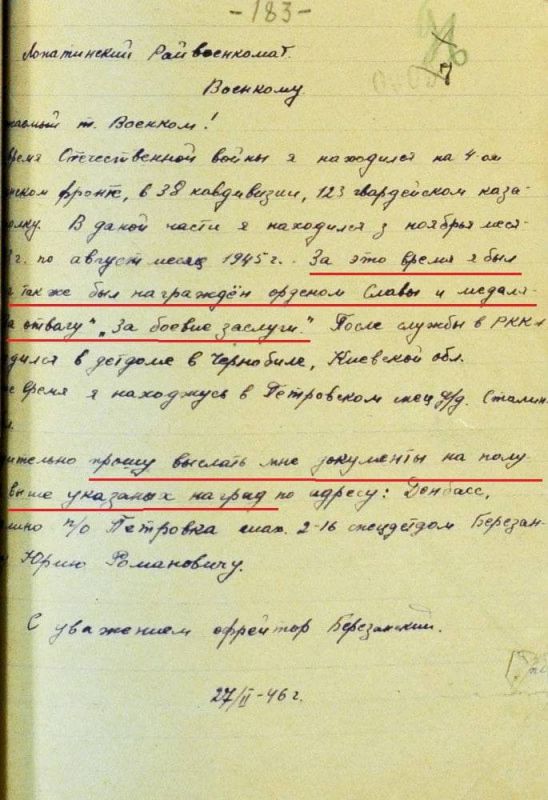 -183-
Лопатинский Райвоенкомат.
Военкому.
жаемый т. Военком!
время Отечественной войны я находился на 4-ом
нском фронте, в 38 кавдивизии, 123 гвардейском каза-
олку. В даной части я находился з ноябрья меся-
г. по август месяц 1945 г. За это время я был
а также был награждён орденом Славы и медаля-
а отвагу" „За боевые заслуги." После службы в РККА
дился в детдоме в Чернобиле, Киевской обл.
е время я находжусь в Петровском спец д/д. Сталин-
дительно прошу выслать мне документы на полу-
выше указаных наград по адресу: Донбасс,
лино п/о Петровка шах. 2-16 спецдетдом Березан-
Юрию Романовичу.
С уважением ефрейтор Березанский.
27/II-46 г.